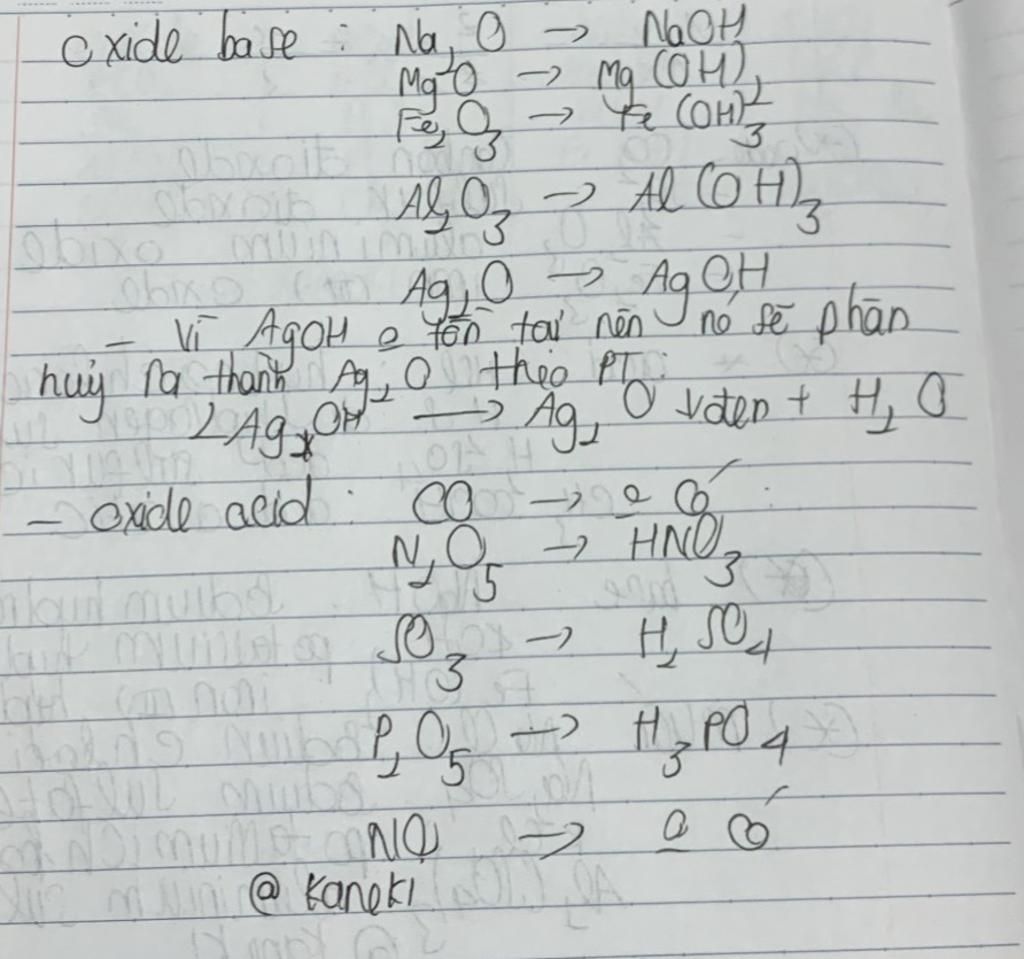 oxide base : Na₂O → NaOH
MgO → Mg(OH)₂
Fe₂O₃ → Fe(OH)₃
Al₂O₃ → Al(OH)₃
Ag₂O → AgOH
- Vì AgOH o tồn tại nên nó sẽ phân
huỷ ra thành Ag₂O theo PT:
2AgOH → Ag₂O + H₂O
- oxide acid : CO → o có
N₂O₅ → HNO₃
SO₃ → H₂SO₄
P₂O₅ → H₃PO₄
NO → o có
@ kaneki